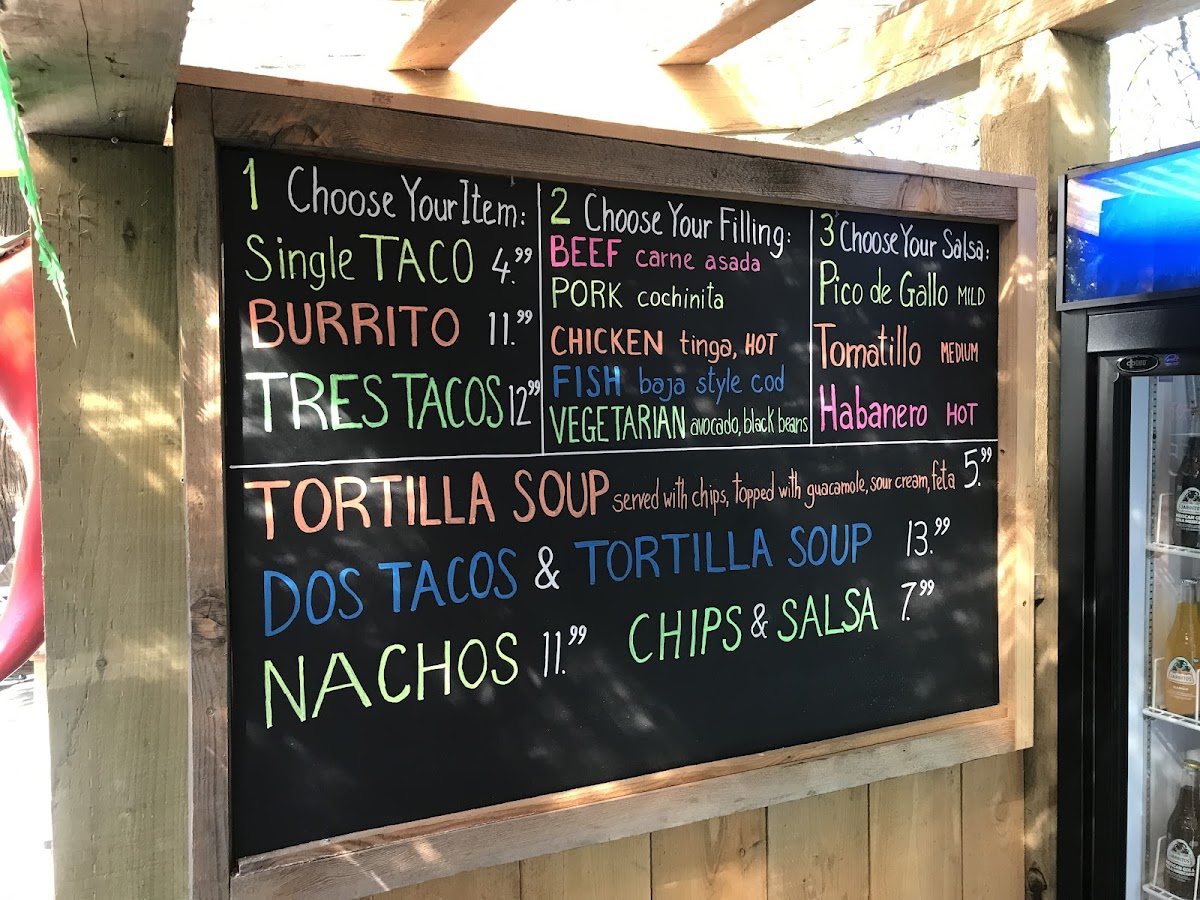 1 Choose Your Item:
Single TACO 4.99
BURRITO 11.99
TRES TACOS 12.99
2 Choose Your Filling:
BEEF carne asada
PORK cochinita
CHICKEN tinga, HOT
FISH baja style cod
VEGETARIAN avocado, black beans
3 Choose Your Salsa:
Pico de Gallo MILD
Tomatillo MEDIUM
Habanero HOT
TORTILLA SOUP served with chips, topped with guacamole, sour cream, feta 5.99
DOS TACOS & TORTILLA SOUP 13.99
NACHOS 11.99 CHIPS & SALSA 7.99
JARRITOS
JARRITOS
JARRITOS